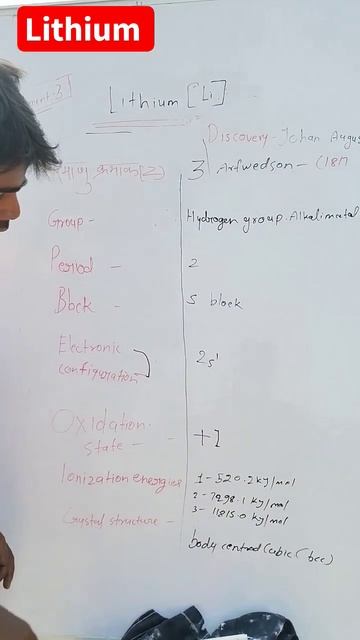 Lithium
Lithium [Li]
Discovery - Johan Augus
परमाणु क्रमांक [Z] 3 Arfwedson - (1817
Group - Hydrogen group. Alkalimetal
Period - 2
Block - s block
Electronic configuration 2s¹
Oxidation state - +1
Ionization energies 1 - 520.2 kJ/mol
2 - 7298.1 kJ/mol
3 - 11815.0 kJ/mol
Crystal structure - body centred cubic (bcc)